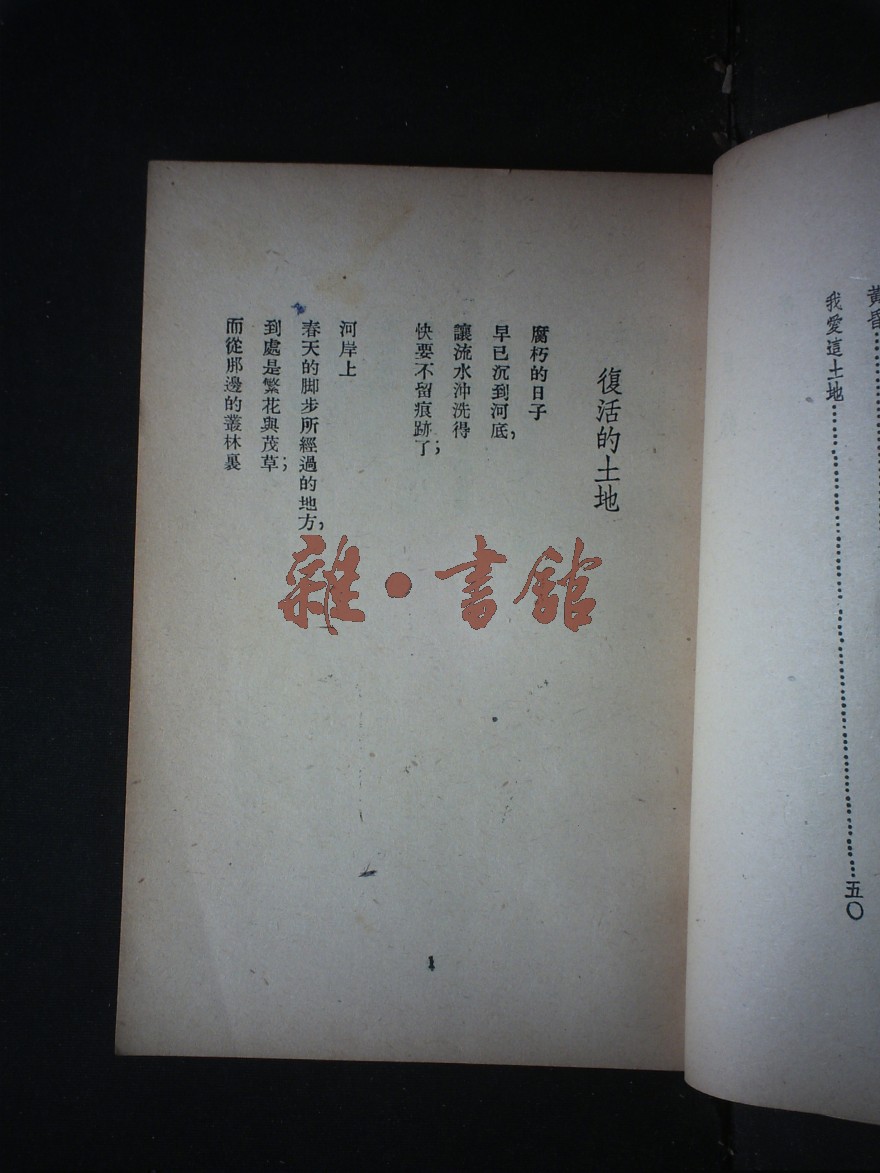 黃昏……………………
我愛這土地……………………五〇
復活的土地
腐朽的日子
早已沉到河底，
讓流水沖洗得
快要不留痕跡了；
河岸上
春天的脚步所經過的地方，
到處是繁花與茂草；
而從那邊的叢林裏
1
雜·書館